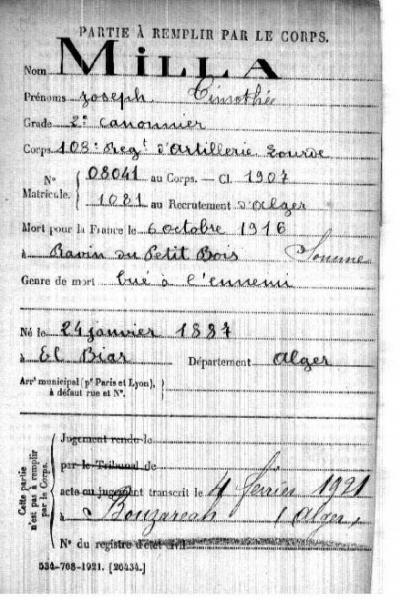 PARTIE À REMPLIR PAR LE CORPS.
Nom MILLA
Prénoms Joseph Timothée
Grade 2e canonnier
Corps 103e Regt d'Artillerie Lourde
N° 08041 au Corps. — Cl. 1907
Matricule. 1081 au Recrutement d'Alger
Mort pour la France le 6 octobre 1916
à Ravin du Petit Bois Somme
Genre de mort tué à l'ennemi
Né le 24 janvier 1887
à El Biar Département Alger
Arrt municipal (pr Paris et Lyon),
à défaut rue et N°.
Cette partie
n'est pas à remplir
par le Corps.
Jugement rendu le
par le Tribunal de
acte ou jugement transcrit le 4 février 1921
à Bouzareah (Alger)
N° du registre d'état civil
534-708-1921. [26434.]